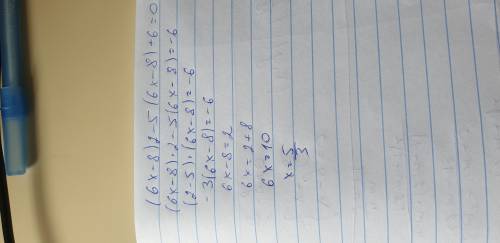 (6x-8)2-5(6x-8)+6=0
(6x-8)·2-5(6x-8)=-6
(2-5)·(6x-8)=-6
-3(6x-8)=-6
6x-8=2
6x=2+8
6x=10
x=5/3